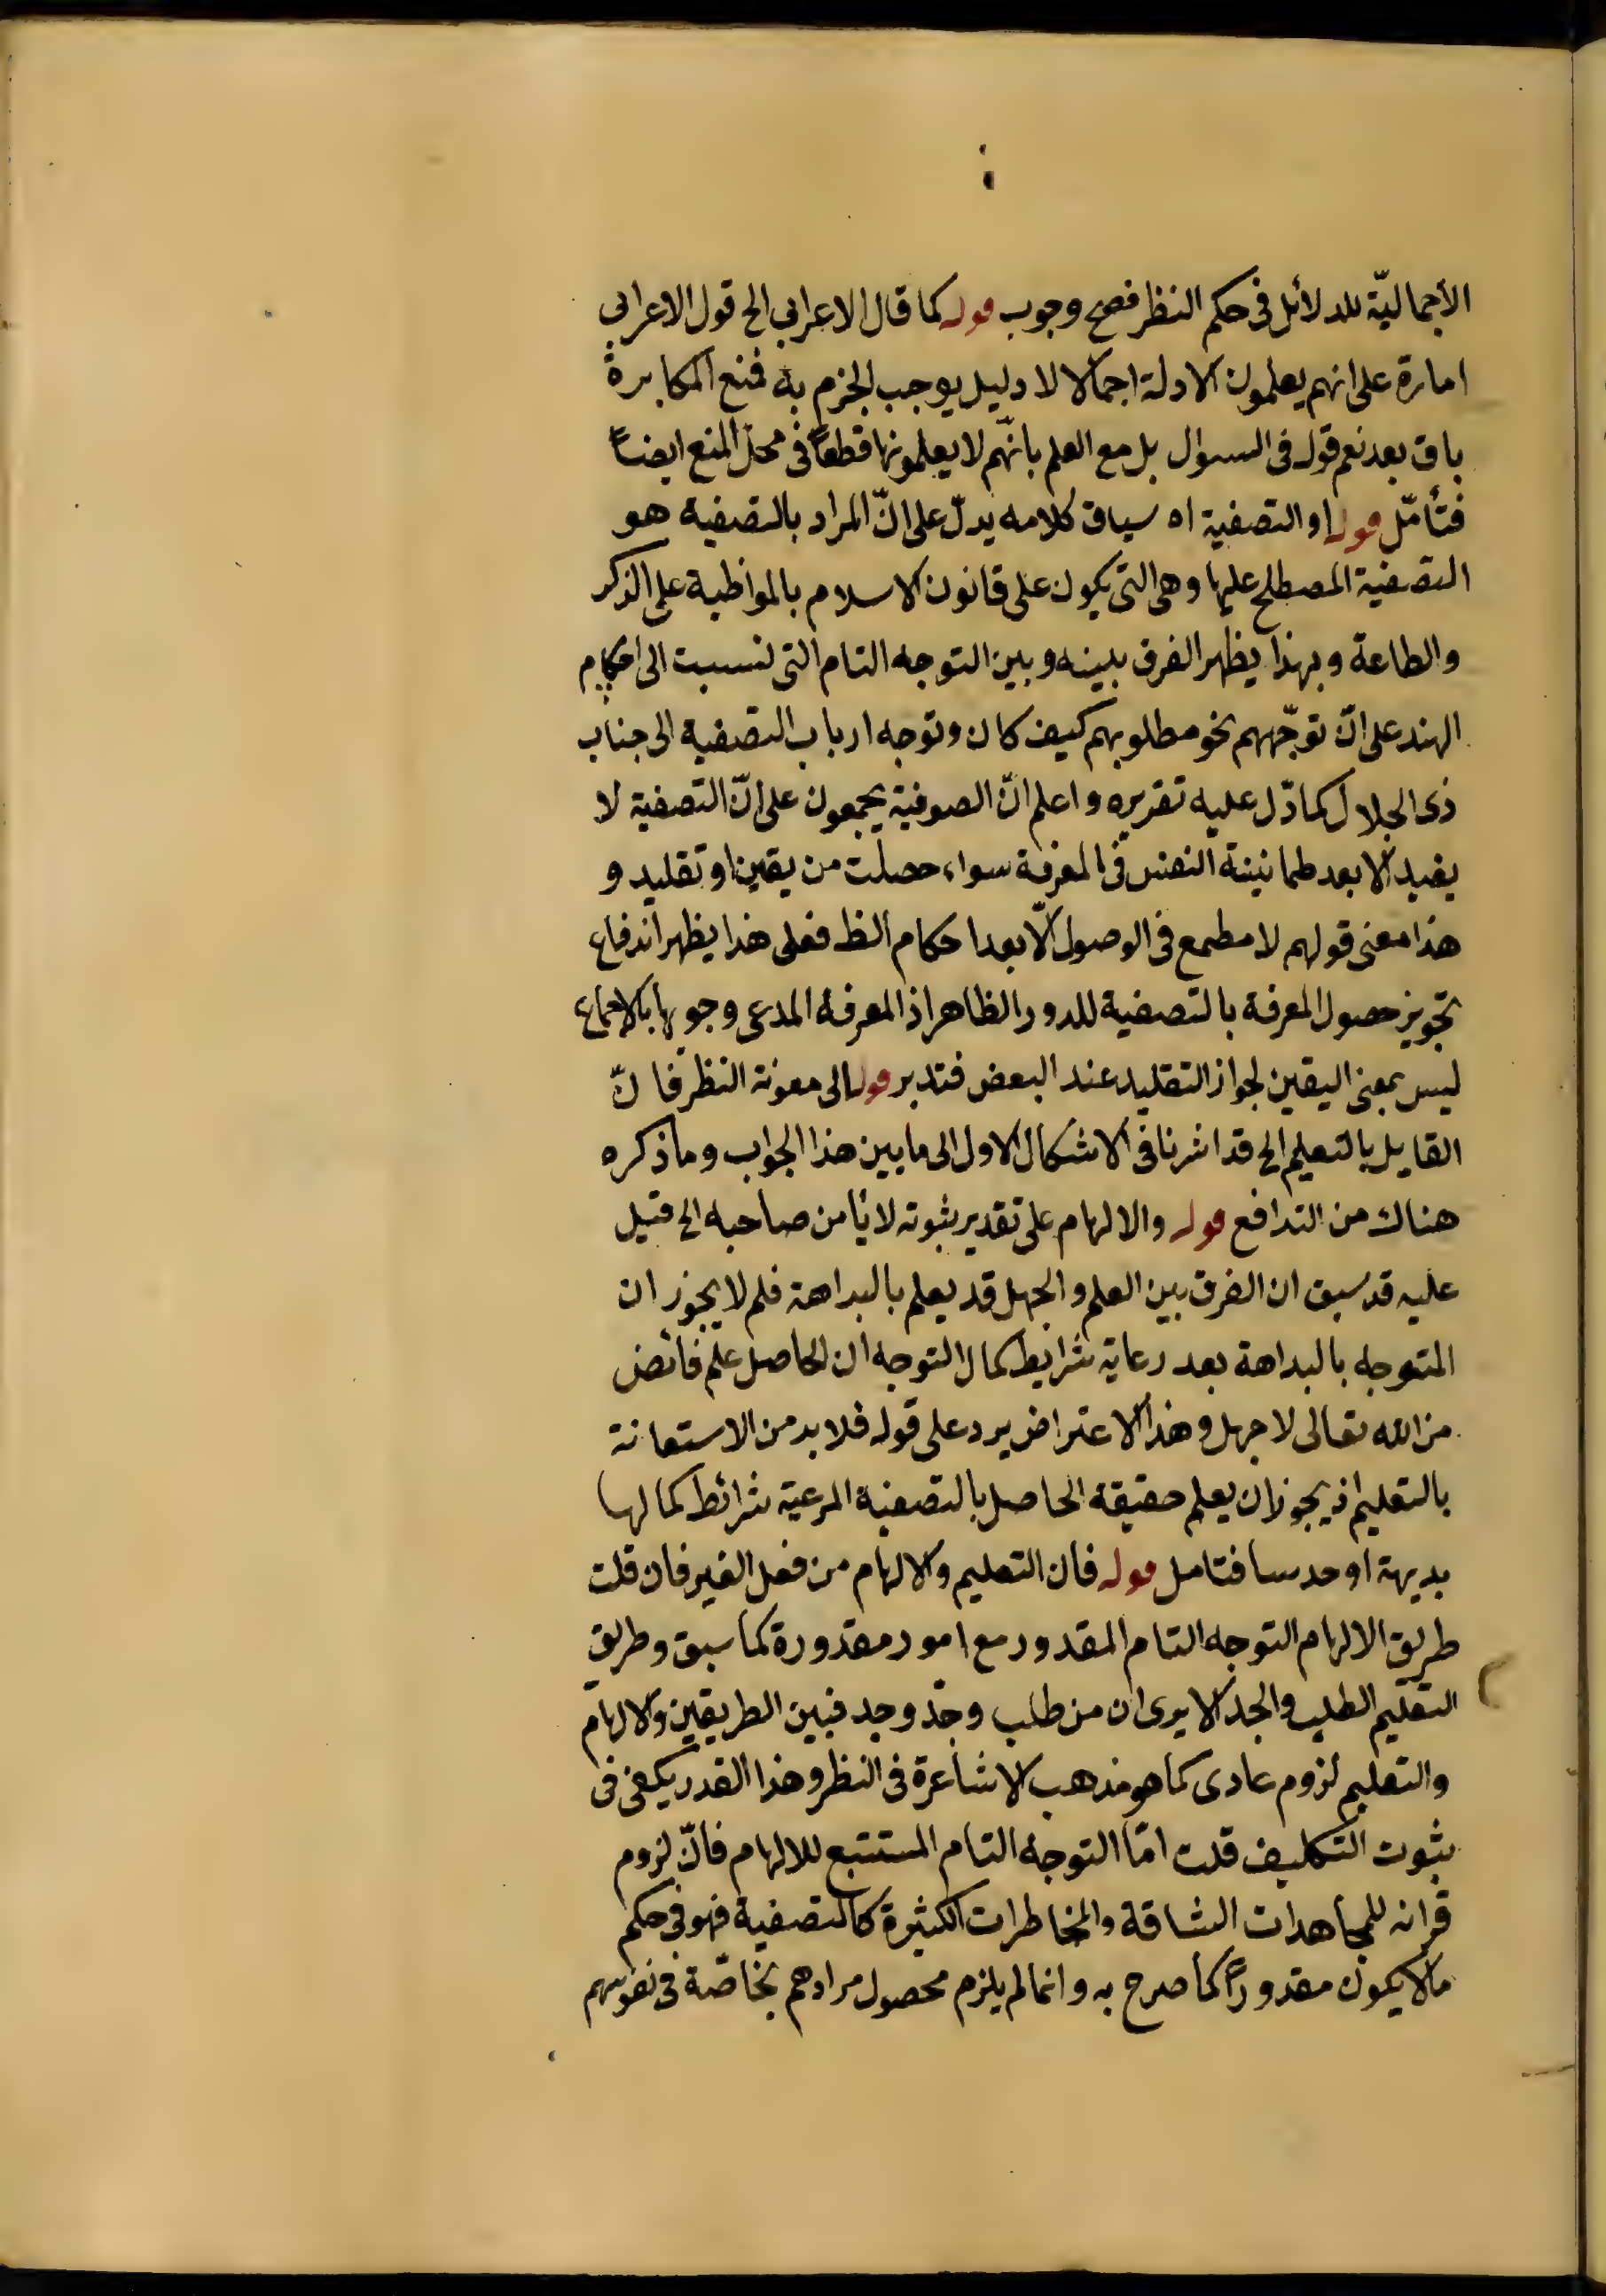 الاجماليّة للدلائل فى حكم النظر فصح وجوب قوله كما قال الاعرابى الخ قول الاعرابى
امارة على انهم يعلمون الادلة اجمالا لا دليل يوجب الجزم به فمنع المكابرة
باق بعد نعم قوله فى السوال بل مع العلم بانّهم لا يعلمونها قطعاً فى محل المنع ايضاً
فتأمّل قوله او التصفية اه سياق كلامه يدلّ على انّ المراد بالتصفية هو
التصفية المصطلح عليها وهى التى يكون على قانون الاسلام بالمواظبة على الذكر
والطاعة وبهذا يظهر الفرق بينه وبين التوجه التام التى نسبت الى احكام
الهند على انّ توجّههم نحو مطلوبهم كيف كان وتوجه ارباب التصفية الى جناب
ذى الجلال كما دّل عليه تقريره و اعلم انّ الصوفية يجمعون على انّ التصفية لا
يفيد الا بعد طمانينة النفس فى المعرفة سواء حصلت من يقين او تقليد و
هذا معنى قولهم لا مطمع فى الوصول الّا بعد احكام الظ فعلى هذا يظهر اندفاع
تجويز حصول المعرفة بالتصفية للدور الظاهر اذ المعرفة المدعى وجوبها بالاجماع
ليس بمعنى اليقين لجواز التقليد عند البعض فتدبر قوله الى معونة النظر فانّ
القايل بالتعليم الخ قد اشرنا فى الاشكال الاول الى ما بين هذا الجواب وما ذكره
هناك من التدافع قوله والالهام على تقدير ثبوته لا يأمن صاحبه الخ قيل
عليه قد سبق ان الفرق بين العلم والجهل قد يعلم بالبداهة فلم لا يجوز ان
المتوجه بالبداهة بعد رعاية شرايط كمال التوجه ان الحاصل علم فائض
من الله تعالى لا جهل وهذا الاعتراض يرد على قوله فلا بد من الاستعانة
بالتعليم اذ يجوز ان يعلم حقيقة الحاصل بالتصفية المرعية شرائط كمالها
بديهة او حدسا فتامل قوله فان التعليم والالهام من فعل الغير فان قلت
طريق الالهام التوجه التام المقدور مع امور مقدورة كما سبق وطريق
التعليم الطلب والجد الا يرى ان من طلب وجدّ وجد فبين الطريقين والالهام
والتعليم لزوم عادى كما هو مذهب الاشاعرة فى النظر وهذا القدر يكفى فى
ثبوت التكليف قلت امّا التوجه التام المستتبع للالهام فانّ لزوم
قرانه للمجاهدات الشاقة والمخاطرات الكثيرة كالتصفية فهو فى حكم
ما لا يكون مقدوراً كما صرح به وانما لم يلزم محصول مرادهم بخاصّة فى نفوسهم